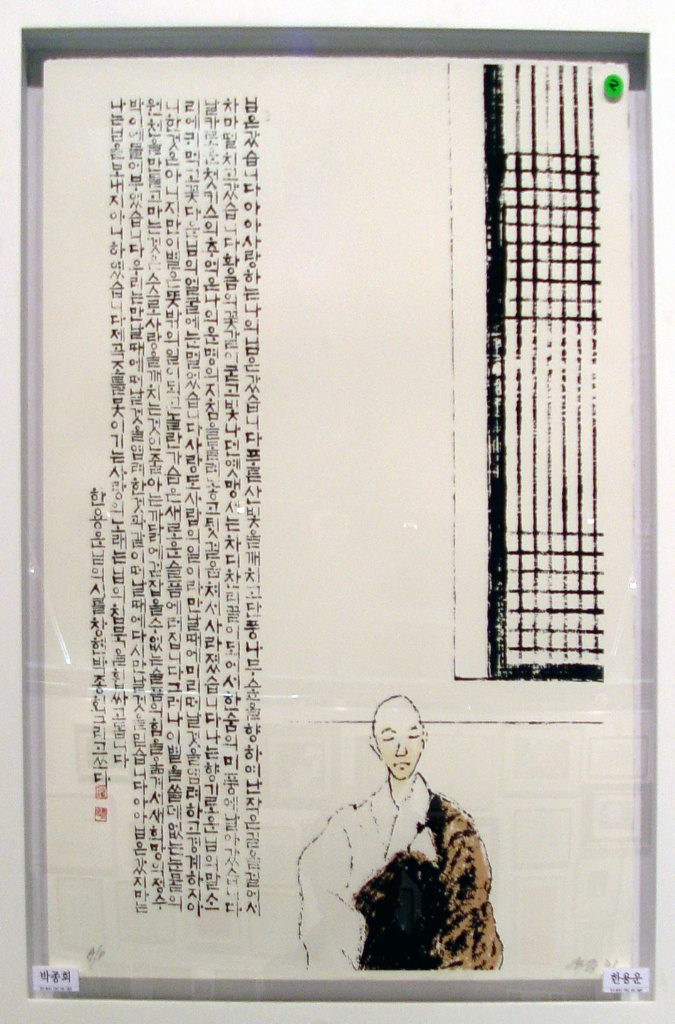 님은갔습니다아아사랑하는나의님은갔습니다푸른산빛을깨치고단풍나무숲을향하야난작은길을걸어서
차마떨치고갔습니다황금의꽃같이굳고빛나던옛맹서는차디찬티끌이되야서한숨의미풍에날아갔습니다
날카로운첫키스의추억은나의운명의지침을돌려놓고뒷걸음쳐서사라졌습니다나는향기로운님의말소
리에귀먹고꽃다운님의얼굴에눈멀었습니다사랑도사람의일이라만날때에미리떠날것을염려하고경계하지아
니한것은아니지만이별은뜻밖의일이되고놀란가슴은새로운슬픔에터집니다그러나이별을쓸데없는눈물의
원천을만들고마는것은스스로사랑을깨치는것인줄아는까닭에걷잡을수없는슬픔의힘을옮겨서새희망의정수
박이에들어부었습니다우리는만날때에떠날것을염려한것과같이떠날때에다시만날것을믿습니다아아님은갔지마는
나는님을보내지아니하였습니다제곡조를못이기는사랑의노래는님의침묵을휩싸고돕니다
한용운님의시를창현박종회그리고쓰다
2
A/P
박종회
한용운